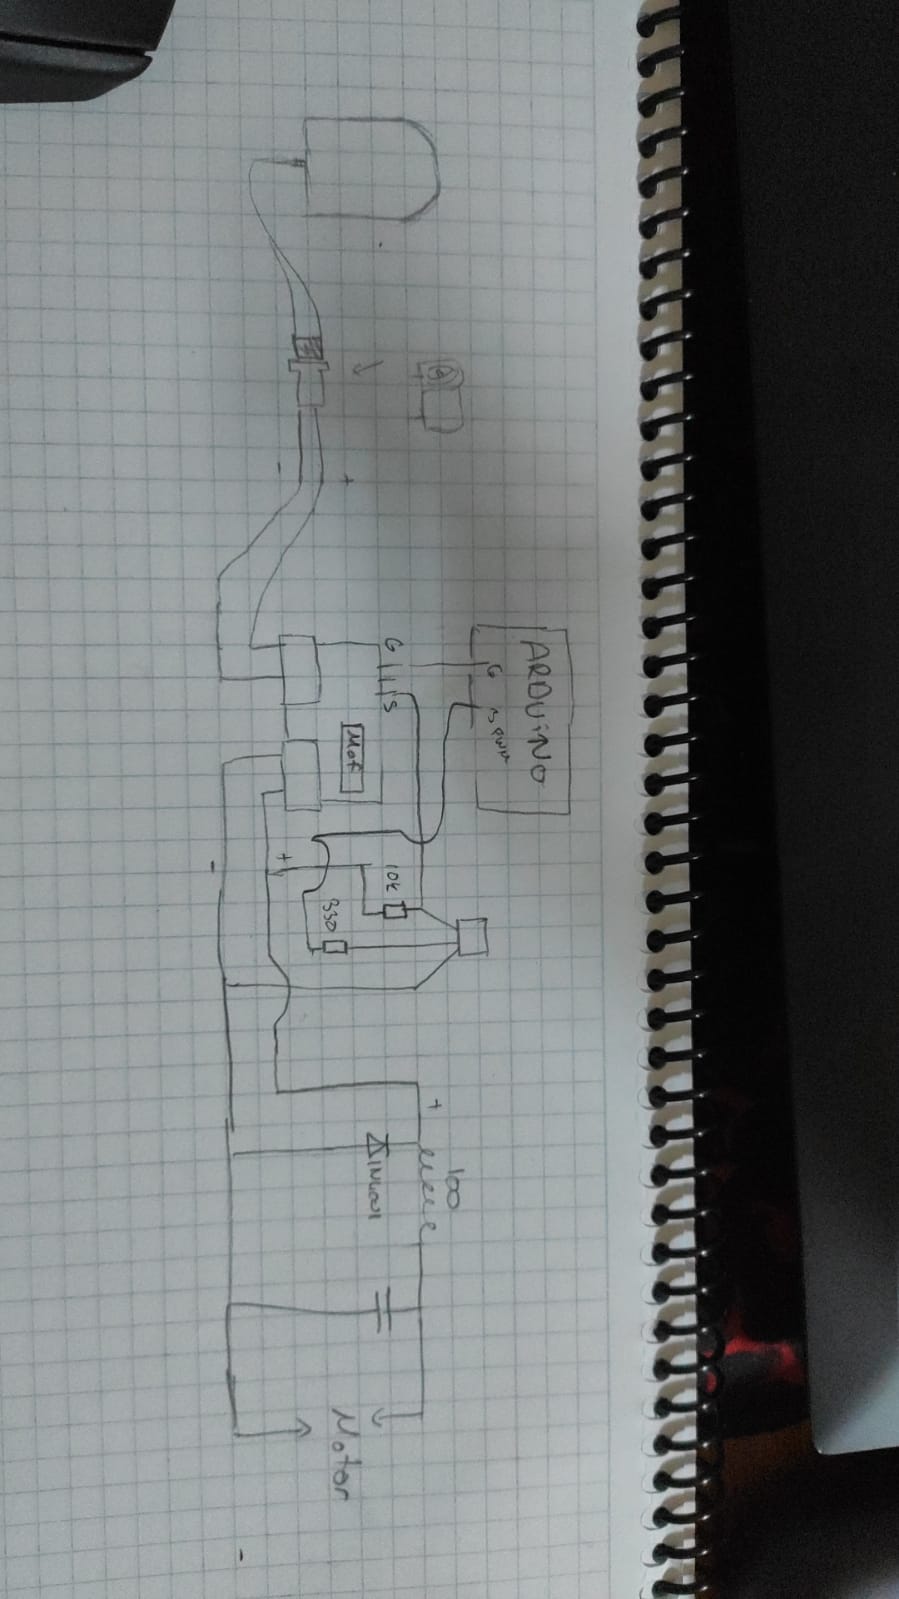 ARDUINO
G
3 PWM
G
S
Mot
10k
330
+
-
+
-
+
100
1N4001
Motor
-